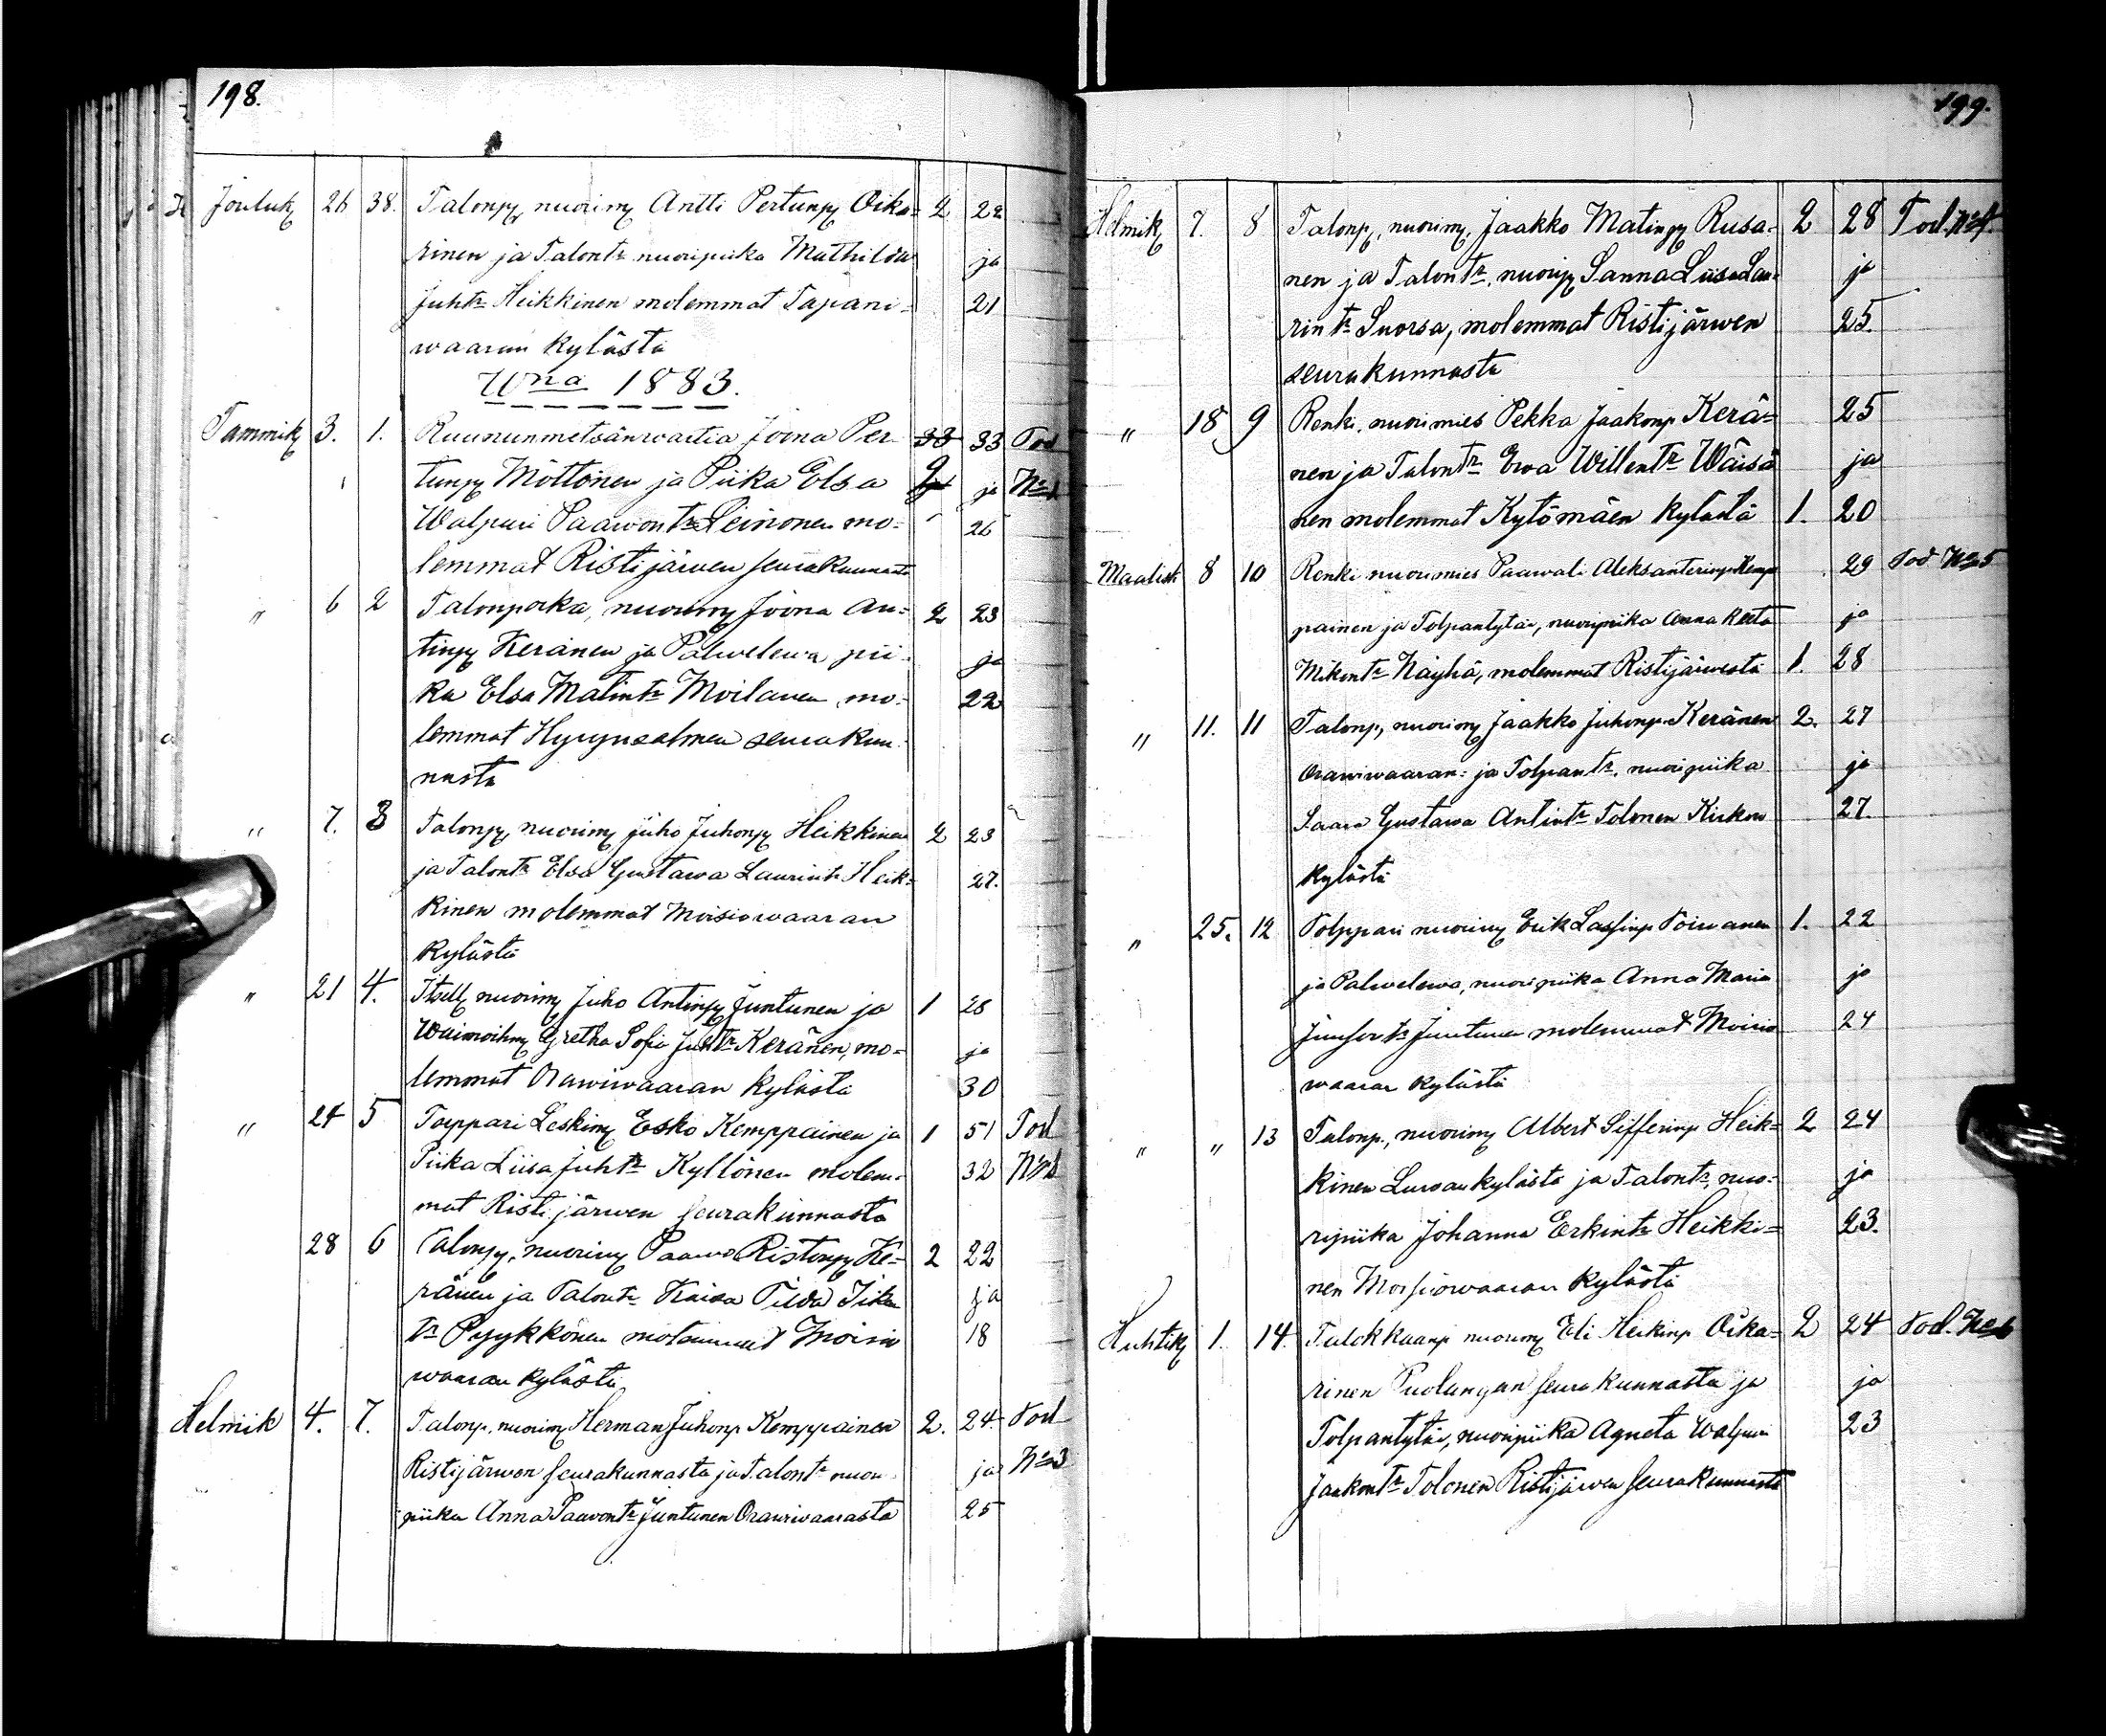 198.
Jouluk 26 38. Talonp, nuorimy Antti Pertunp Oika= 2 22
rinen ja Talontr nuoripiika Mathilda ja
Juhtr Heikkinen molemmat Tapani= 21
waaran kylästä
Wna 1883.
Tammik 3. 1. Ruununmetsänwartia Joina Per 33 33 Tod
tunp Möttönen ja Piika Elsa ja No 1
Walpuri Paawontr Leinonen mo= 26
lemmat Ristijärwen seurakunnasta
" 6 2 Talonpoika, nuorimy Joona An= 2 23
tinp Keränen ja Palwelewa pii ja
ka Elsa Matintr Moilanen mo= 22
lemmat Hyrynsalmen seurakun=
nasta
" 7. 3 Talonp, nuorimy Juho Juhonp Heikkinen 2 23
ja Talontr Elsa Gustawa Laurintr Heik= 27.
kinen molemmat Moisiowaaran
kylästä
" 21 4. Itsell nuorimy Juho Antinp Juntunen ja 1 28
Waimoihm Gretha Sofia Juhtr Keränen, mo= ja
lemmat Orawiwaaran kylästä 30
" 24 5 Torppari Leskimy Esko Kemppainen ja 1 51 Tod
Piika Liisa Juhtr Kyllönen molem= 32 No 2
mat Ristijärwen seurakunnasta
28 6 Talonp, nuorimy Paawo Ristonp Ke= 2 22
ränen ja Talontr Kaisa Tilda Iikan ja
tr Pyykkönen molemmat Moisio 18
waaran kylästä
Helmik 4. 7. Talonp, nuorimy Herman Juhonp Kemppainen 2. 24 Tod
Ristijärwen seurakunnasta ja Talontr nuori ja No 3
piika Anna Paawontr Juntunen Orawiwaarasta 25
199.
Helmik 7. 8 Talonp, nuorimy, Jaakko Matinp Rusa= 2 28 Tod. No 4.
nen ja Talontr. nuorip Sanna Liisa Lau= ja
rintr Suorsa, molemmat Ristijärwen 25.
seurakunnasta
" 18 9 Renki, nuorimies Pekka Jaakonp Kerä= 25
nen ja Talontr Ewa Willentr Wäisä ja
nen molemmat Kytömäen kylästä 1. 20
Maalisk 8 10 Renki nuorimies Paawali Aleksanterinp Kemp 29 Tod No 5
painen ja Tolpantytär, nuoripiika Anna Reeta ja
Mikontr Näyhä, molemmat Ristijärwestä 1. 28
" 11. 11 Talonp, nuorimy Jaakko Juhonp Keränen 2. 27
Orawiwaaran= ja Tolpantr. nuoripiika ja
Saara Gustawa Antintr Tolonen Kirkon 27.
kylästä
" 25. 12 Tolppari nuorimy Erik Lassinp Toiwanen 1. 22
ja Palwelewa, nuoripiika Anna Maria ja
Juntunen molemmat Moisio 24
waaran kylästä
" " 13 Talonp., nuorimy Albert Sifferinp Heik= 2 24
kinen kylästä ja Talontr, nuo= ja
ripiika Johanna Erkintr Heikki= 23.
nen Moisiowaaran kylästä
Huhtik 1. 14. nuorimy Eli Heikinp Oika= 2 24 Tod. No 6
rinen Puolangan seurakunnasta ja ja
Tolpantytär, nuoripiika Agneta Walpuri 23
Jaakontr Tolonen Ristijärwen seurakunnasta